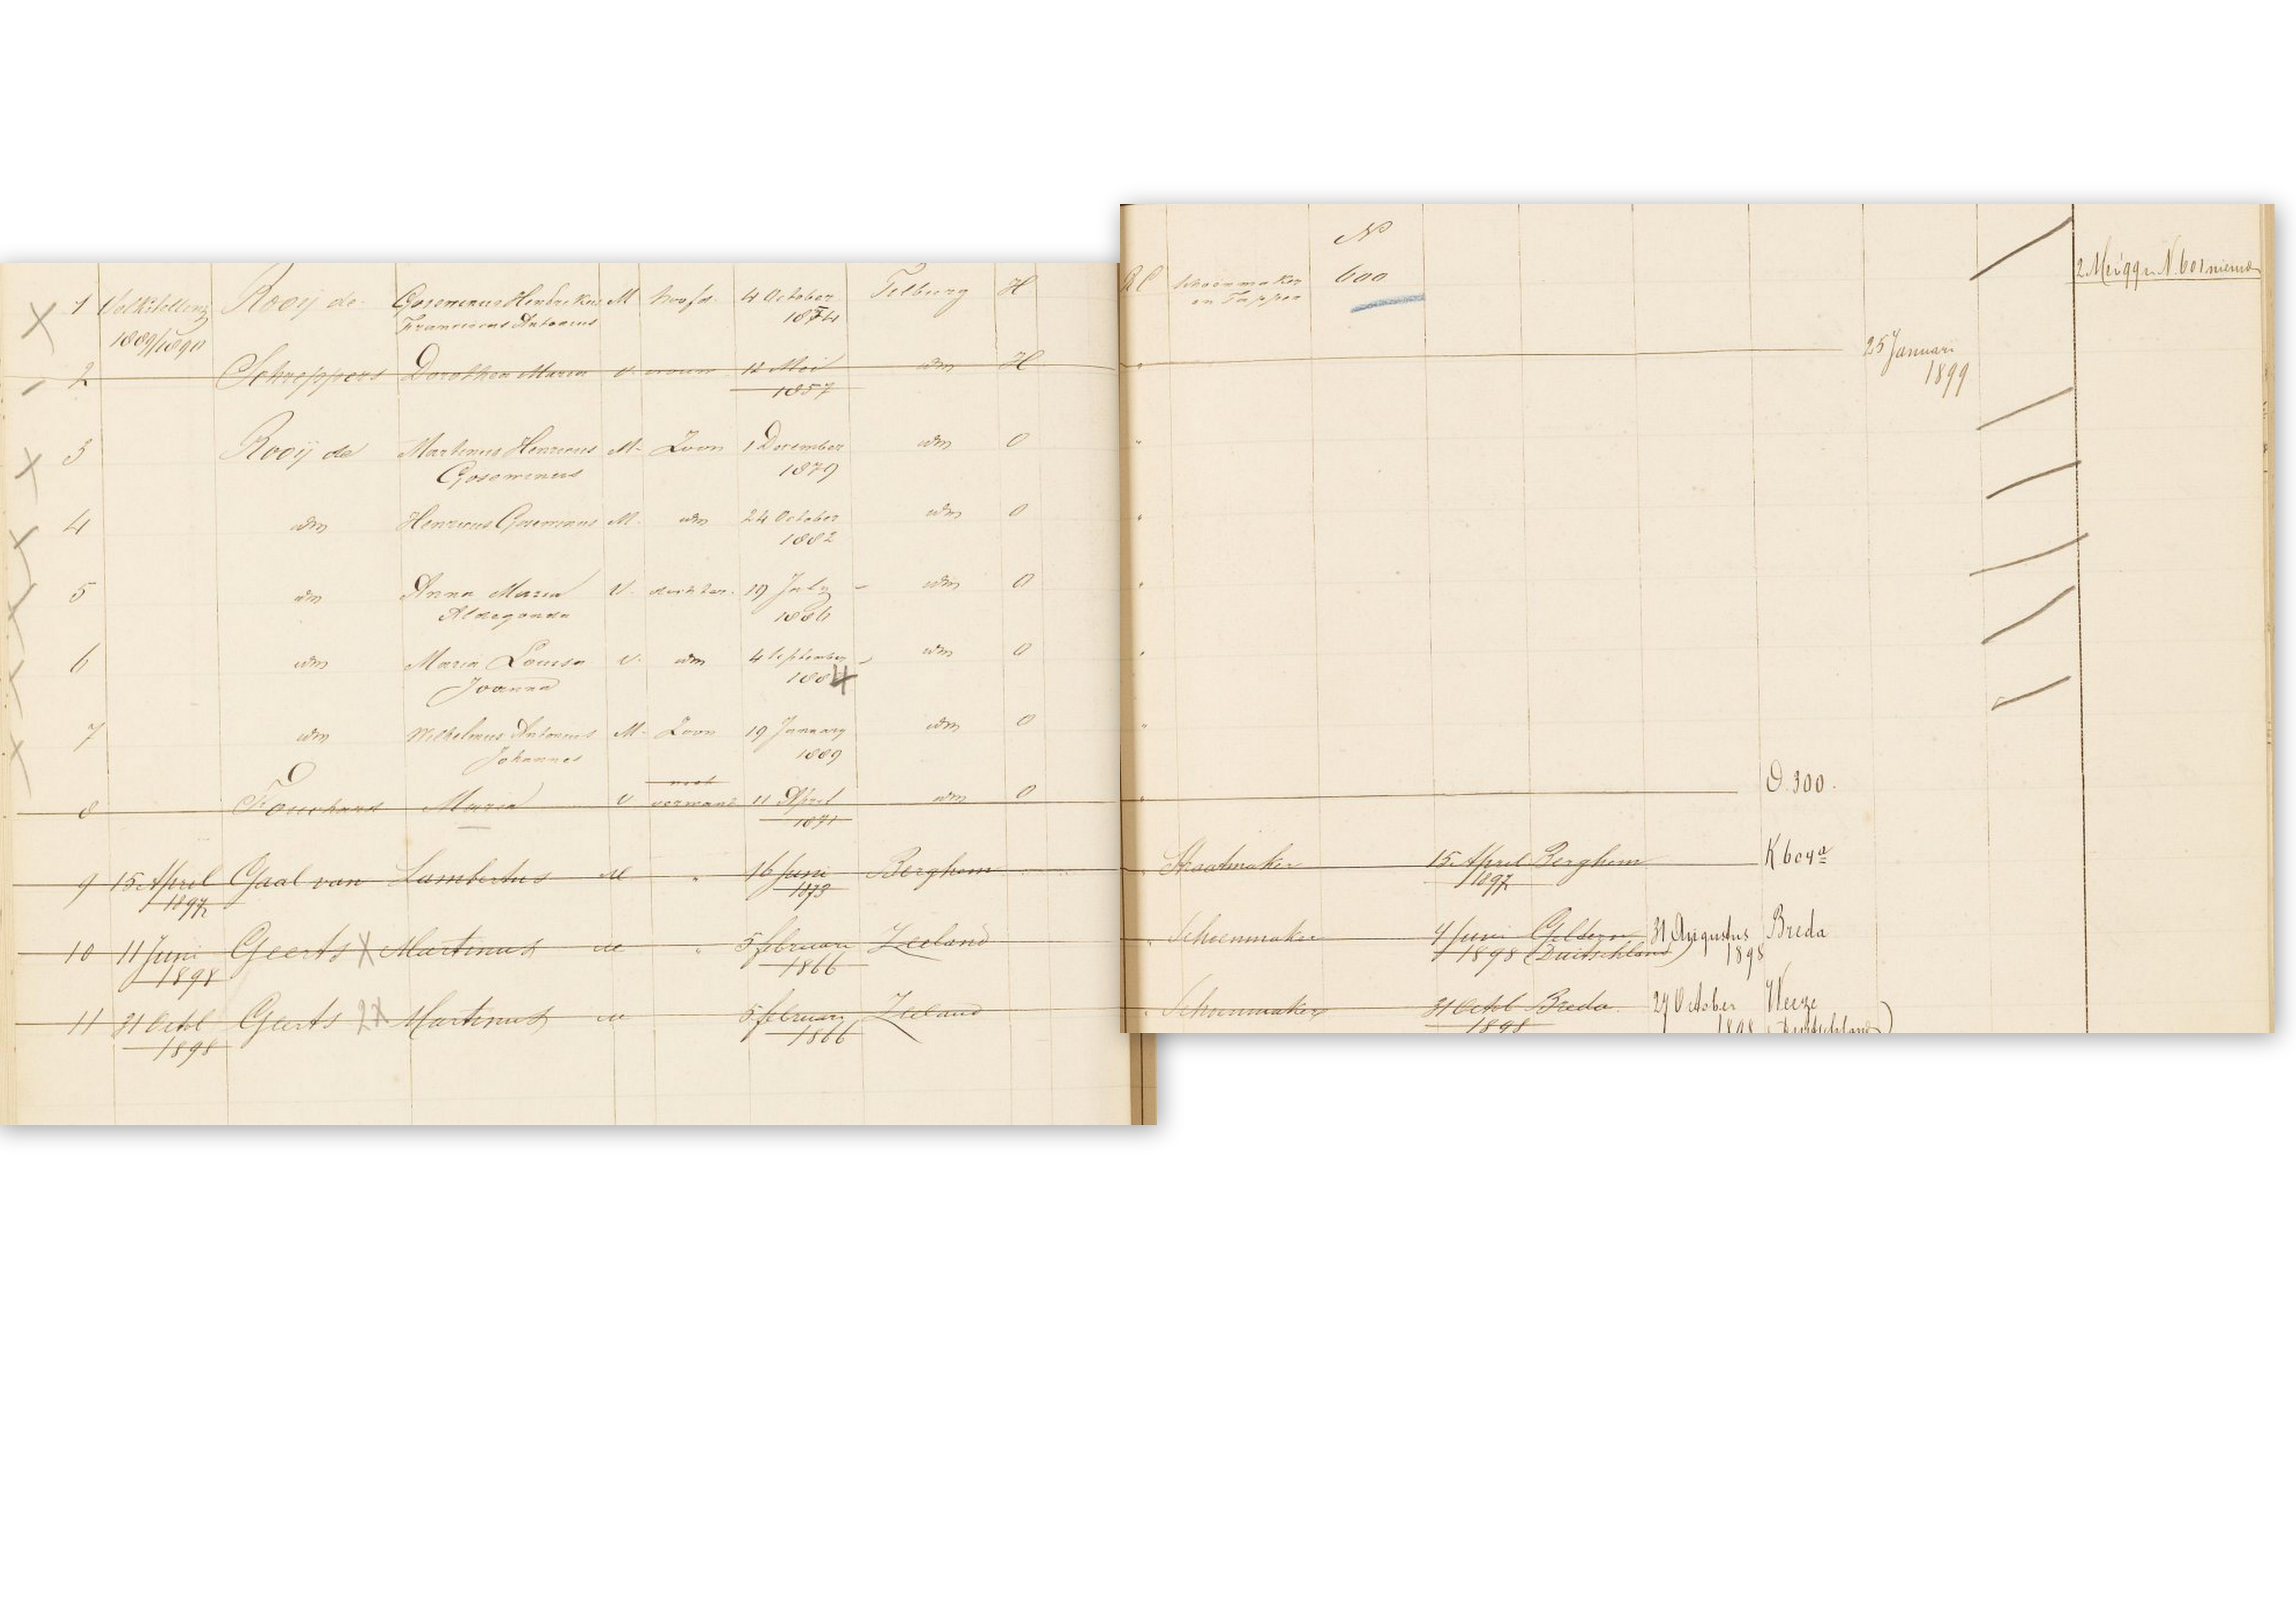 N
1 Volkstelling Rooij de Goswinus Hendrikus M hoofd 4 October Tilburg H RC Schoenmaker 600 2 Mei 99 N. 601 nieuw
1889/1890 Franciscus Antonius 1854 en Tapper
2 Schreppers Dorothea Maria v. vrouw 12 Mei idm H " 25 Januari
1857 1899
3 Rooij de Martinus Henricus M. Zoon 1 December idm O "
Goswinus 1879
4 idm Henricus Goswinus M. idm 24 October idm O "
1882
5 idm Anna Maria V. dochter. 19 July idm O "
Aldegonda 1886
6 idm Maria Louisa v. idm 4 September idm O "
Joanna 1884
7 idm Wilhelmus Antonius M. Zoon 19 January idm O "
Johannes 1889
8 Maria v 11 April idm O " O. 300.
15 April Gaal van Lambertus M " 16 Juni Berghem " 15 April Berghem K 604a
9 1897 1873 1897
10 11 Juni Geerts X Martinus M " 5 februari Zeeland " Schoenmaker 4 Juni Geldern 31 Augustus Breda
1898 1866 1898 (Duitschland) 1898
11 31 Octb Geerts 2X Martinus M 5 februari Zeeland " Schoenmaker 31 Octb Breda 27 October Weeze
1898 1866 1898 1898 (Duitschland)